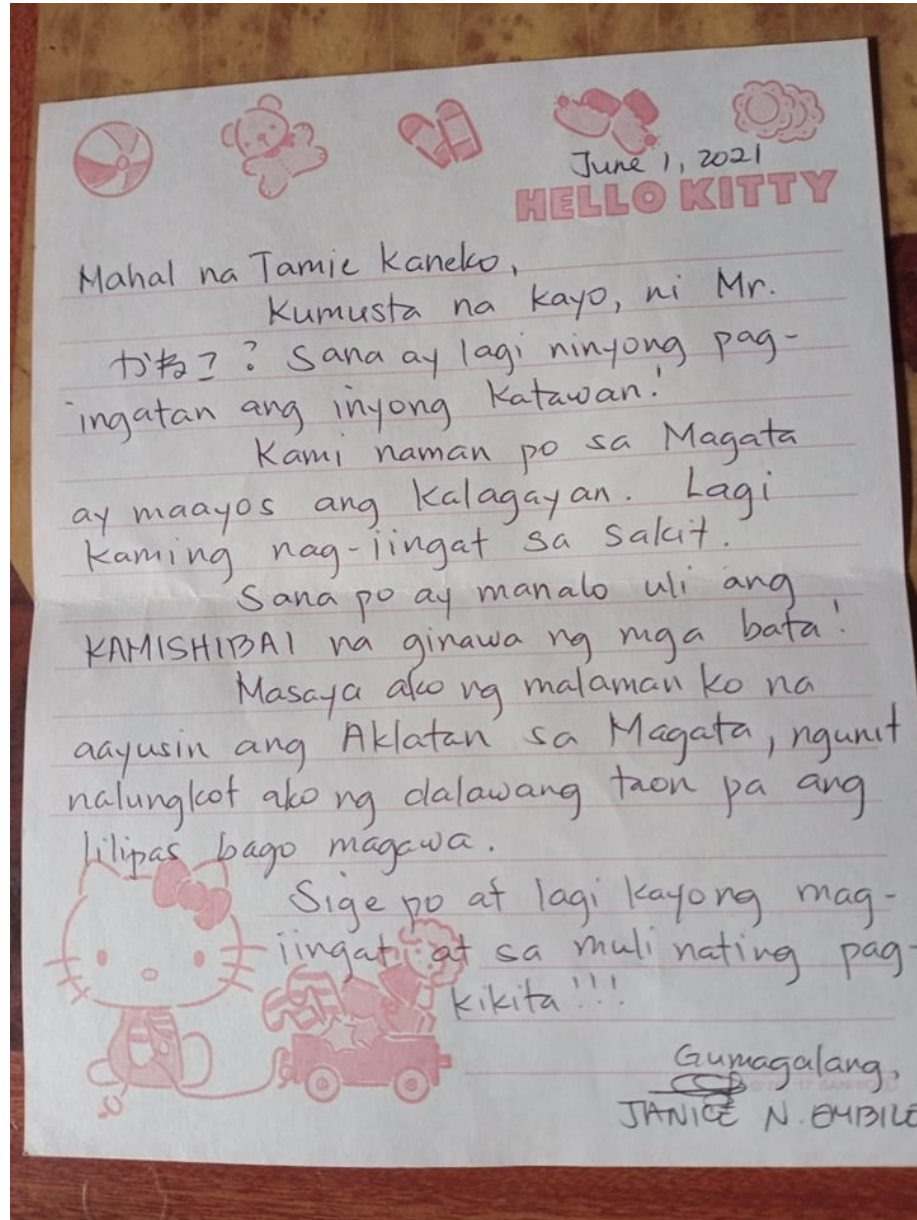 June 1, 2021
HELLO KITTY
Mahal na Tamie Kaneko,
Kumusta na kayo, ni Mr.
かねこ? Sana ay lagi ninyong pag-
ingatan ang inyong katawan!
Kami naman po sa Magata
ay maayos ang kalagayan. Lagi
kaming nag-iingat sa sakit.
Sana po ay manalo uli ang
KAMISHIBAI na ginawa ng mga bata!
Masaya ako ng malaman ko na
aayusin ang Aklatan sa Magata, ngunit
nalungkot ako ng dalawang taon pa ang
lilipas bago magawa.
Sige po at lagi kayong mag-
iingat at sa muli nating pag-
kikita!!!
Gumagalang,
JANICE N. EMBILE